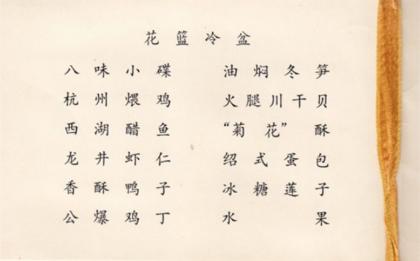 花篮冷盆
八味小碟
杭州煨鸡
西湖醋鱼
龙井虾仁
香酥鸭子
公爆鸡丁
油焖冬笋
火腿川干贝
“菊花”酥
绍式蛋包
冰糖莲子
水果